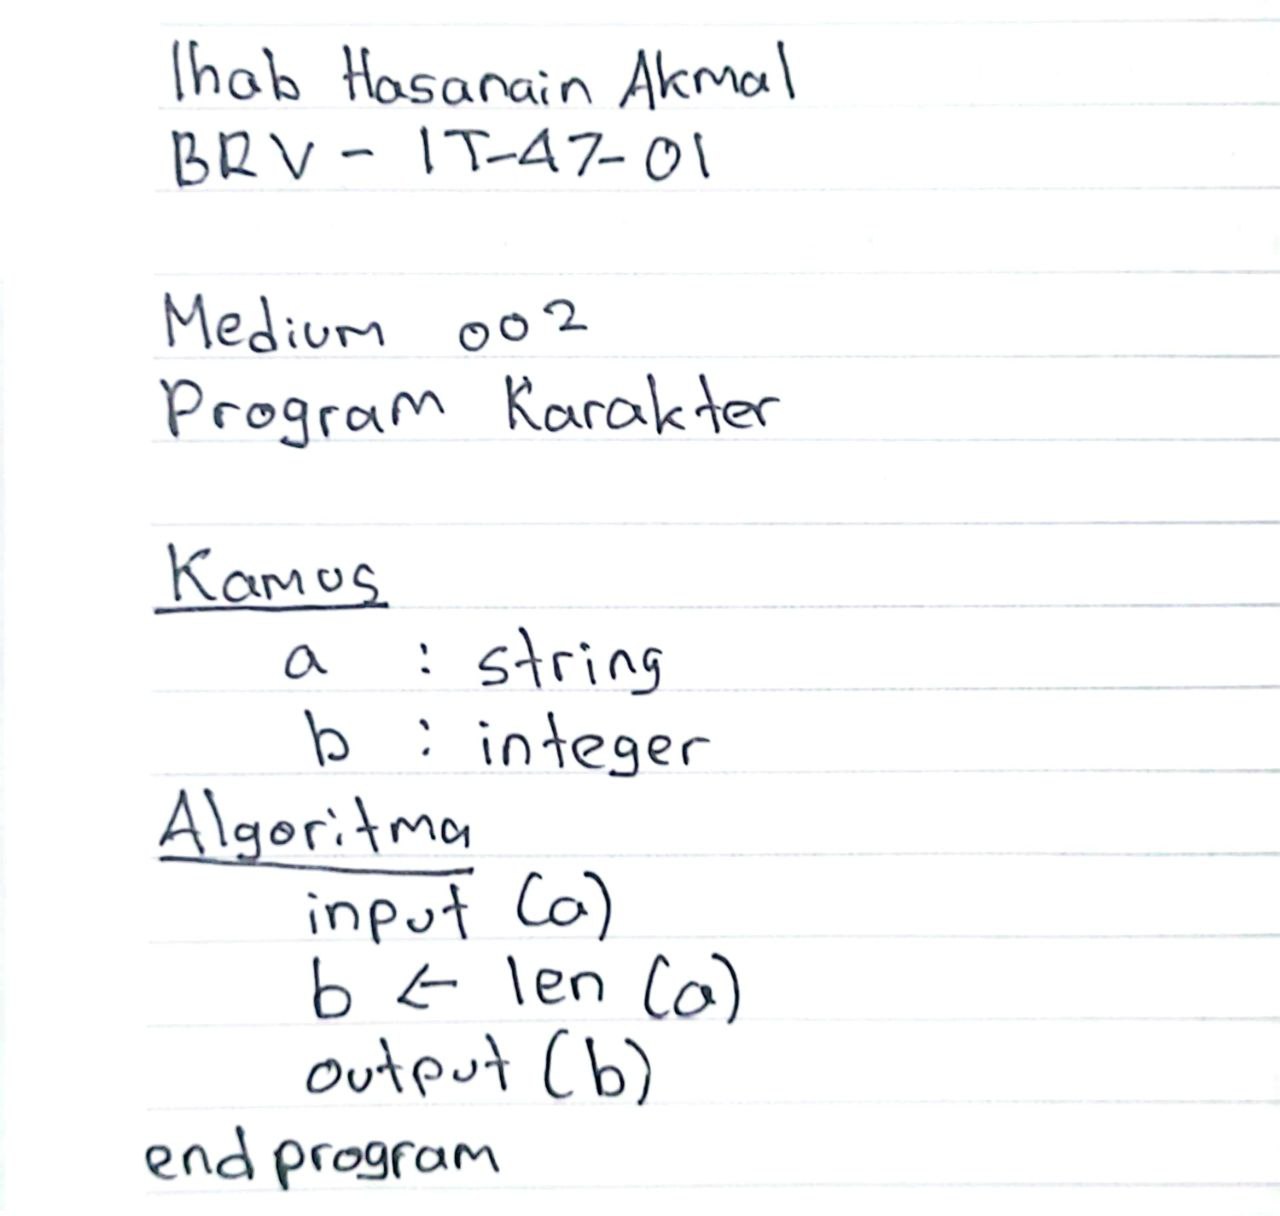 Ihab Hasanain Akmal
BRV - IT-47-01
Medium 002
Program Karakter
Kamus
a : string
b : integer
Algoritma
input (a)
b ← len (a)
output (b)
end program